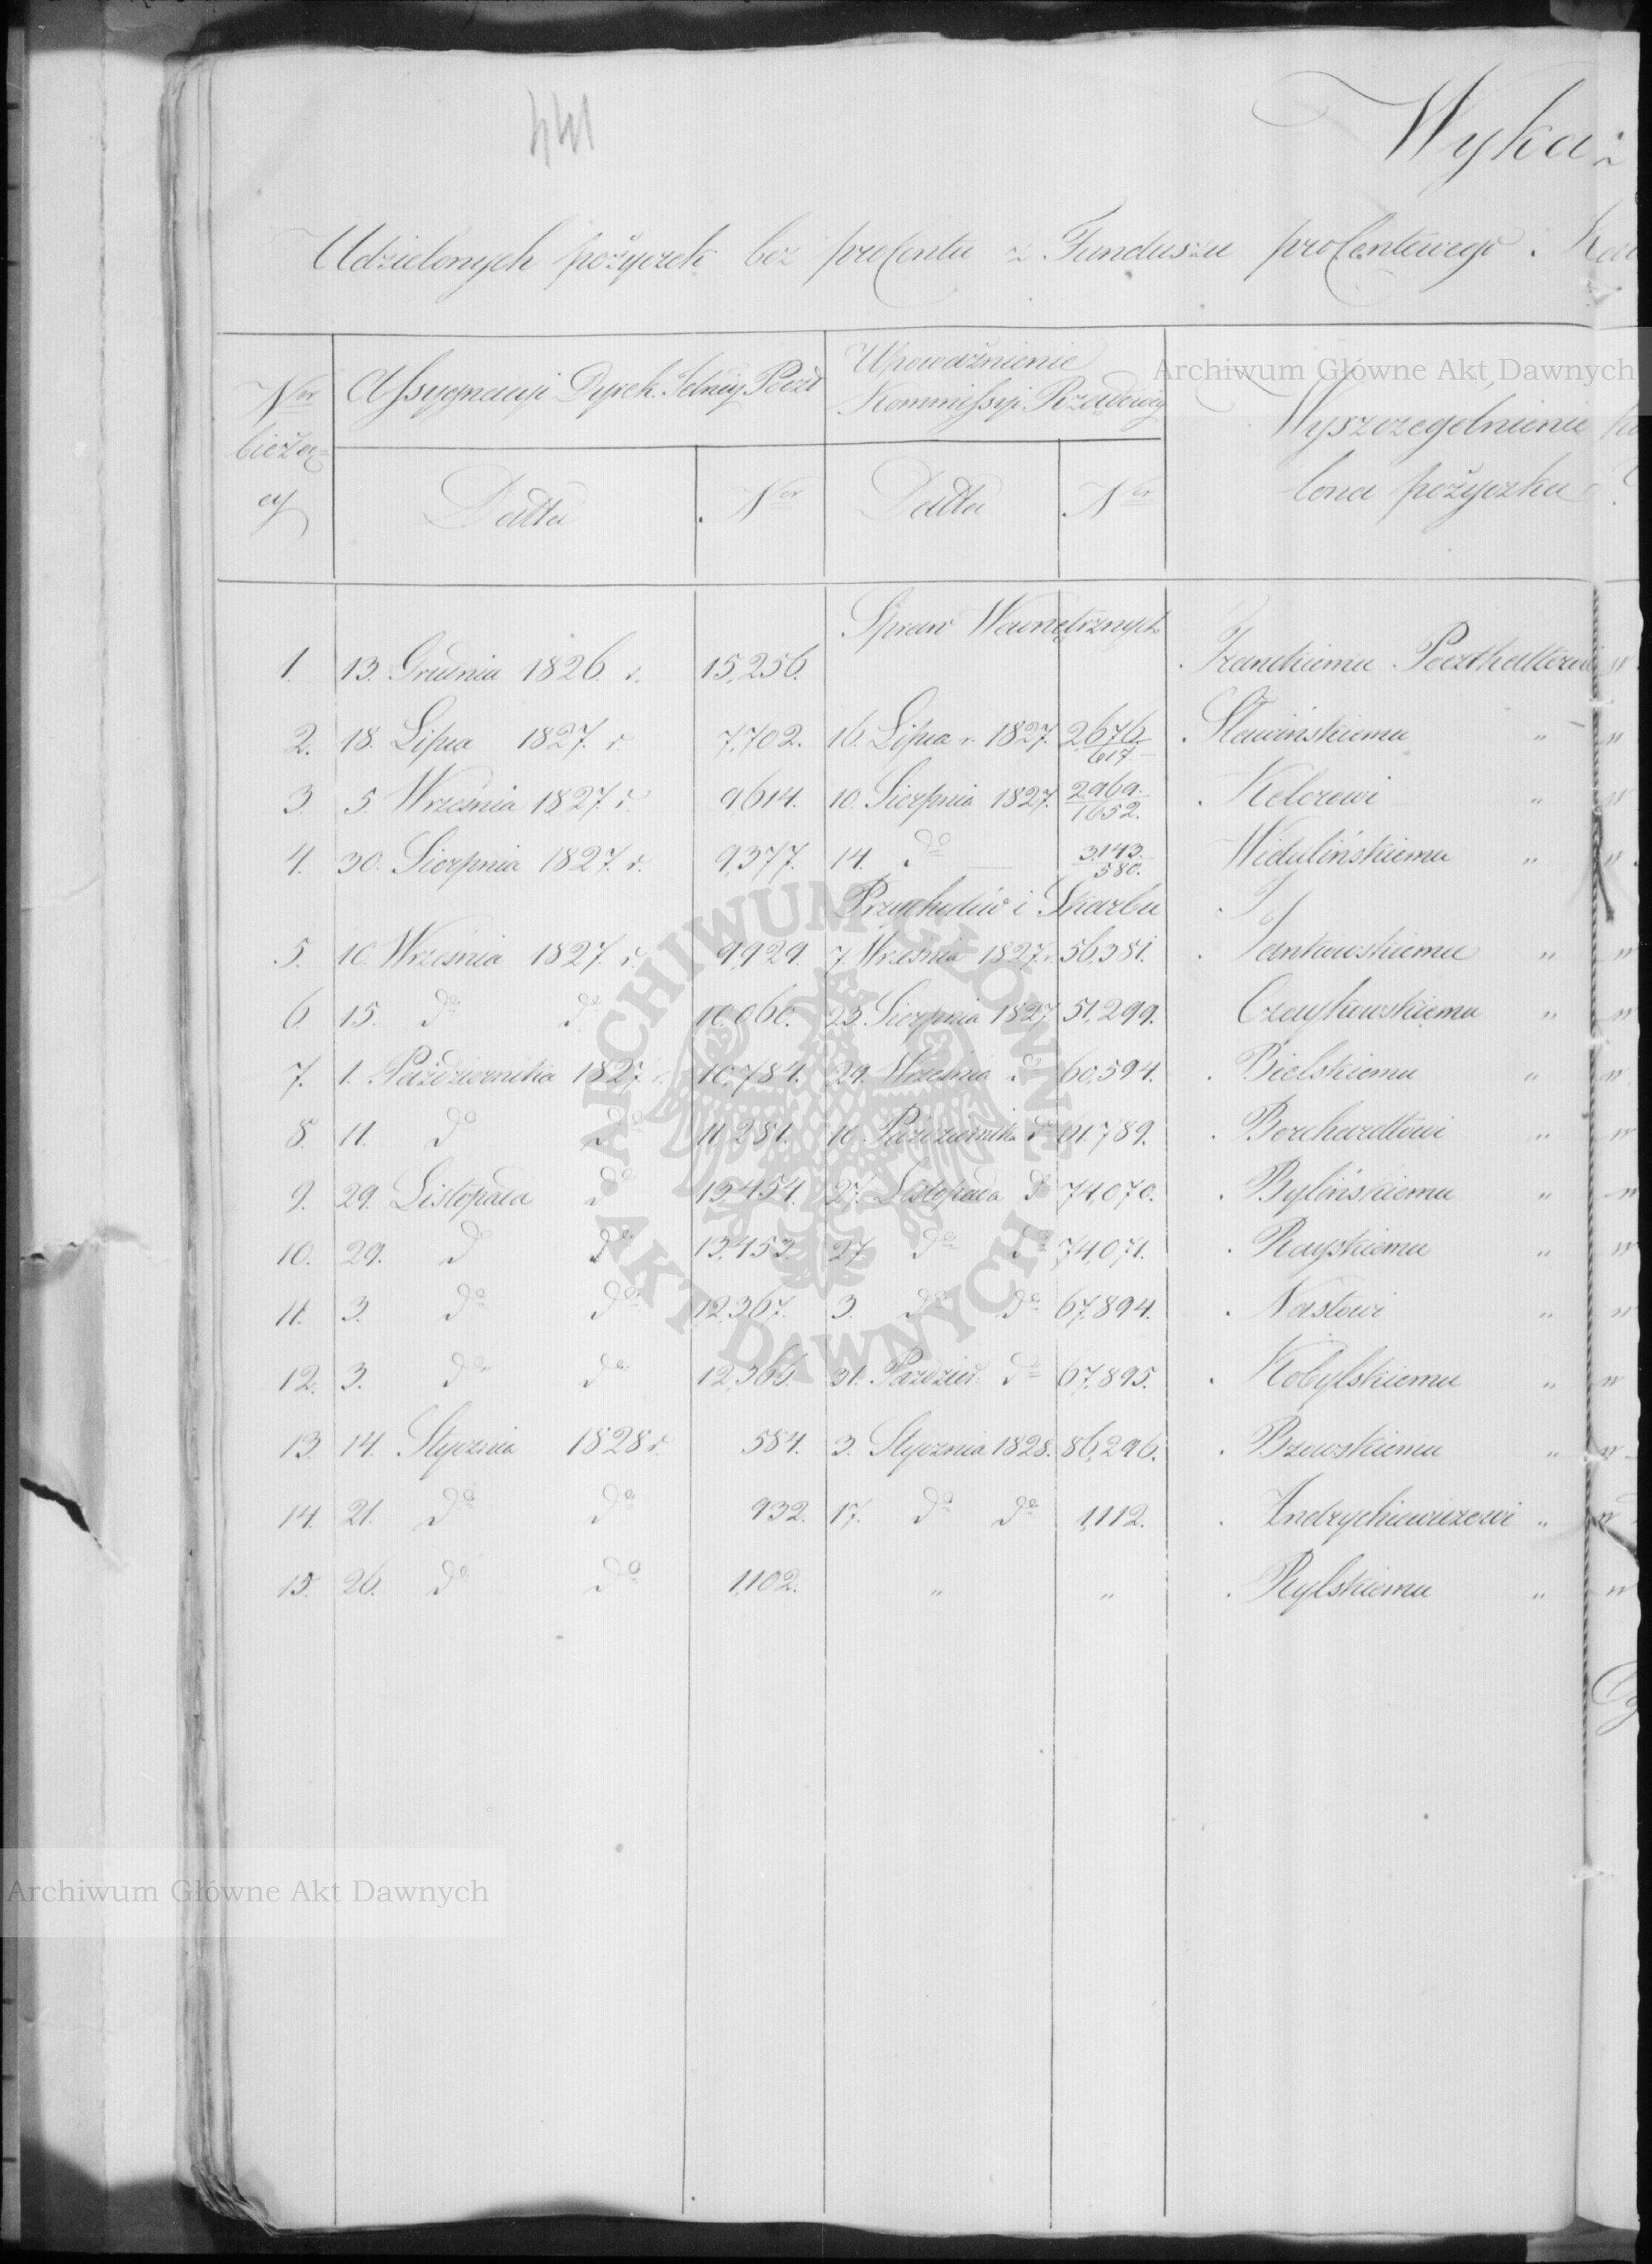 441
Wykaz
Udzielonych pożyczek bez procentu z Funduszu procentowego
Ner bieżący
Assygnacyi Dyrek. Jelnéy Poczt
Upoważnienie
Kommissyi Rządowéy
Wyszczegolnienie
lona pożyczka
Datta Ner Datta Ner
Spraw Wewnętrznych
1. 13. Grudnia 1826. r. 15,256. Pocthalterowi "
2. 18. Lipca 1827. r. 7,702. 16. Lipca r. 1827. 2,676/617 Sławińskiemu " "
3. 5. Września 1827. r. 9,614. 10. Sierpnia 1827. 2969./1652. Kelerowi " "
4. 30. Sierpnia 1827. r. 9,377. 14. do 3.143./580. Widulińskiemu " "
Przychodów i Skarbu
5. 10. Września 1827. r. 9,929. 7 Września 1827. r. 56,381. Jankowskiemu " "
6. 15. do do 10,060. 23. Sierpnia 1827 51,299. " "
7. 1. Października 1827. r. 10,784. 29. Września do 60,594. Bielskiemu " "
8. 11. do do 11,281. 10. Października do 61.789. Borchardtowi " "
9. 29. Listopada do 13,454. 27. Listopada do 74,070. Bylińskiemu " "
10. 29. do do 13,453. 27. do do 74,071. Rayskiemu " "
11. 3. do do 12,367. 3. do do 67,894. Nastowi " "
12. 3. do do 12,366. 31. Paździer. do 67,895. Kobylskiemu " "
13. 14. Stycznia 1828 r. 584. 3. Stycznia 1828. 86,296. Bzowskiemu " "
14. 21. do do 932. 17. do do 1,112. Indrychiewiczowi " "
15. 26. do do 1,102. " " Rylskiemu " "
Archiwum Główne Akt Dawnych
ARCHIWUM GŁÓWNE
AKT DAWNYCH
Archiwum Główne Akt Dawnych